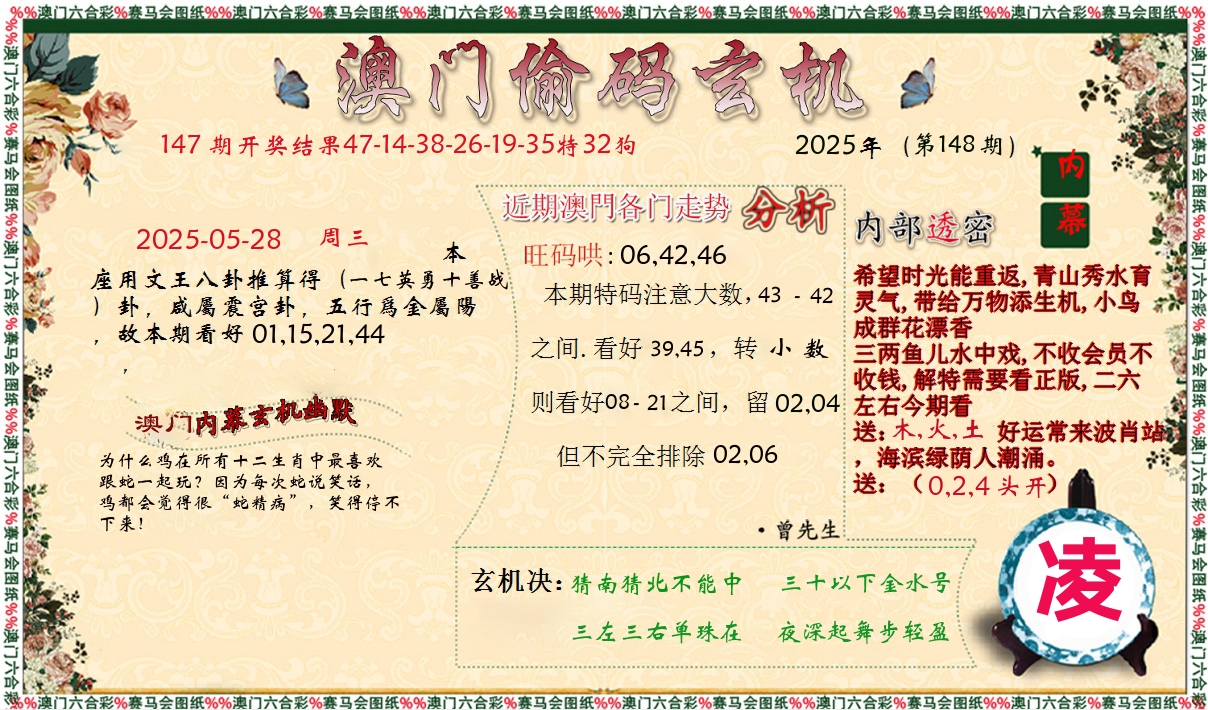 %%澳门六合彩%赛马会图纸%%澳门六合彩%赛马会图纸%%澳门六合彩%赛马会图纸%%澳门六合彩%赛马会图纸%%澳门六合彩%赛马会图纸%%澳门六合彩%赛马会图纸%%
澳门偷码玄机
147 期开奖结果47-14-38-26-19-35特32狗
2025年 (第148 期)
内
幕
2025-05-28 周三
本
座用文王八卦推算得 (一七英勇十善战
) 卦, 咸屬震宫卦, 五行爲金屬陽
, 故本期看好 01,15,21,44
,
澳门内幕玄机幽默
为什么鸡在所有十二生肖中最喜欢
跟蛇一起玩? 因为每次蛇说笑话,
鸡都会觉得很“蛇精病”, 笑得停不
下来!
近期澳門各门走势 分析
旺码哄: 06,42,46
本期特码注意大数, 43 - 42
之间. 看好 39,45 , 转 小 数
则看好08 - 21之间, 留 02,04
但不完全排除 02,06
·曾先生
内部透密
希望时光能重返, 青山秀水育
灵气, 带给万物添生机, 小鸟
成群花漂香
三两鱼儿水中戏, 不收会员不
收钱, 解特需要看正版, 二六
左右今期看
送: 木, 火, 土 好运常来波肖站
, 海滨绿荫人潮涌。
送: (0,2,4 头开)
玄机决: 猜南猜北不能中 三十以下金水号
三左三右单珠在 夜深起舞步轻盈
凌
%%澳门六合彩%赛马会图纸%%澳门六合彩%赛马会图纸%%澳门六合彩%赛马会图纸%%澳门六合彩%赛马会图纸%%澳门六合彩%赛马会图纸%%澳门六合彩%赛马会图纸%%